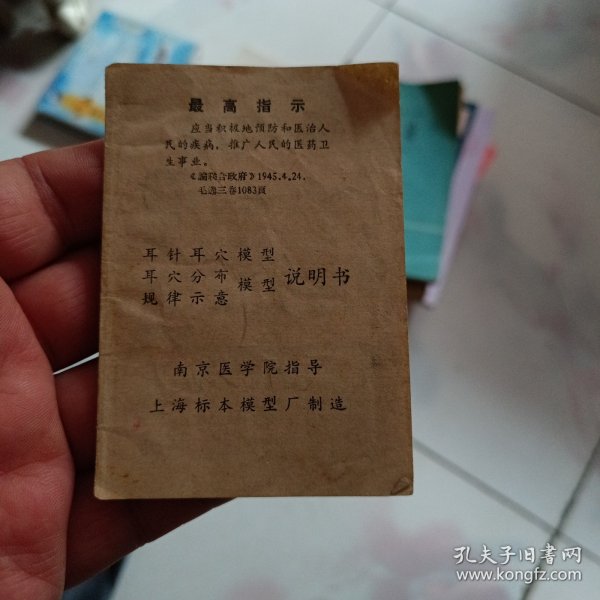 最高指示
应当积极地预防和医治人
民的疾病，推广人民的医药卫
生事业。
《论联合政府》1945.4.24.
毛选三卷1083页
耳针耳穴模型
耳穴分布
规律示意
模型
说明书
南京医学院指导
上海标本模型厂制造
孔夫子旧书网
www.kongfz.com